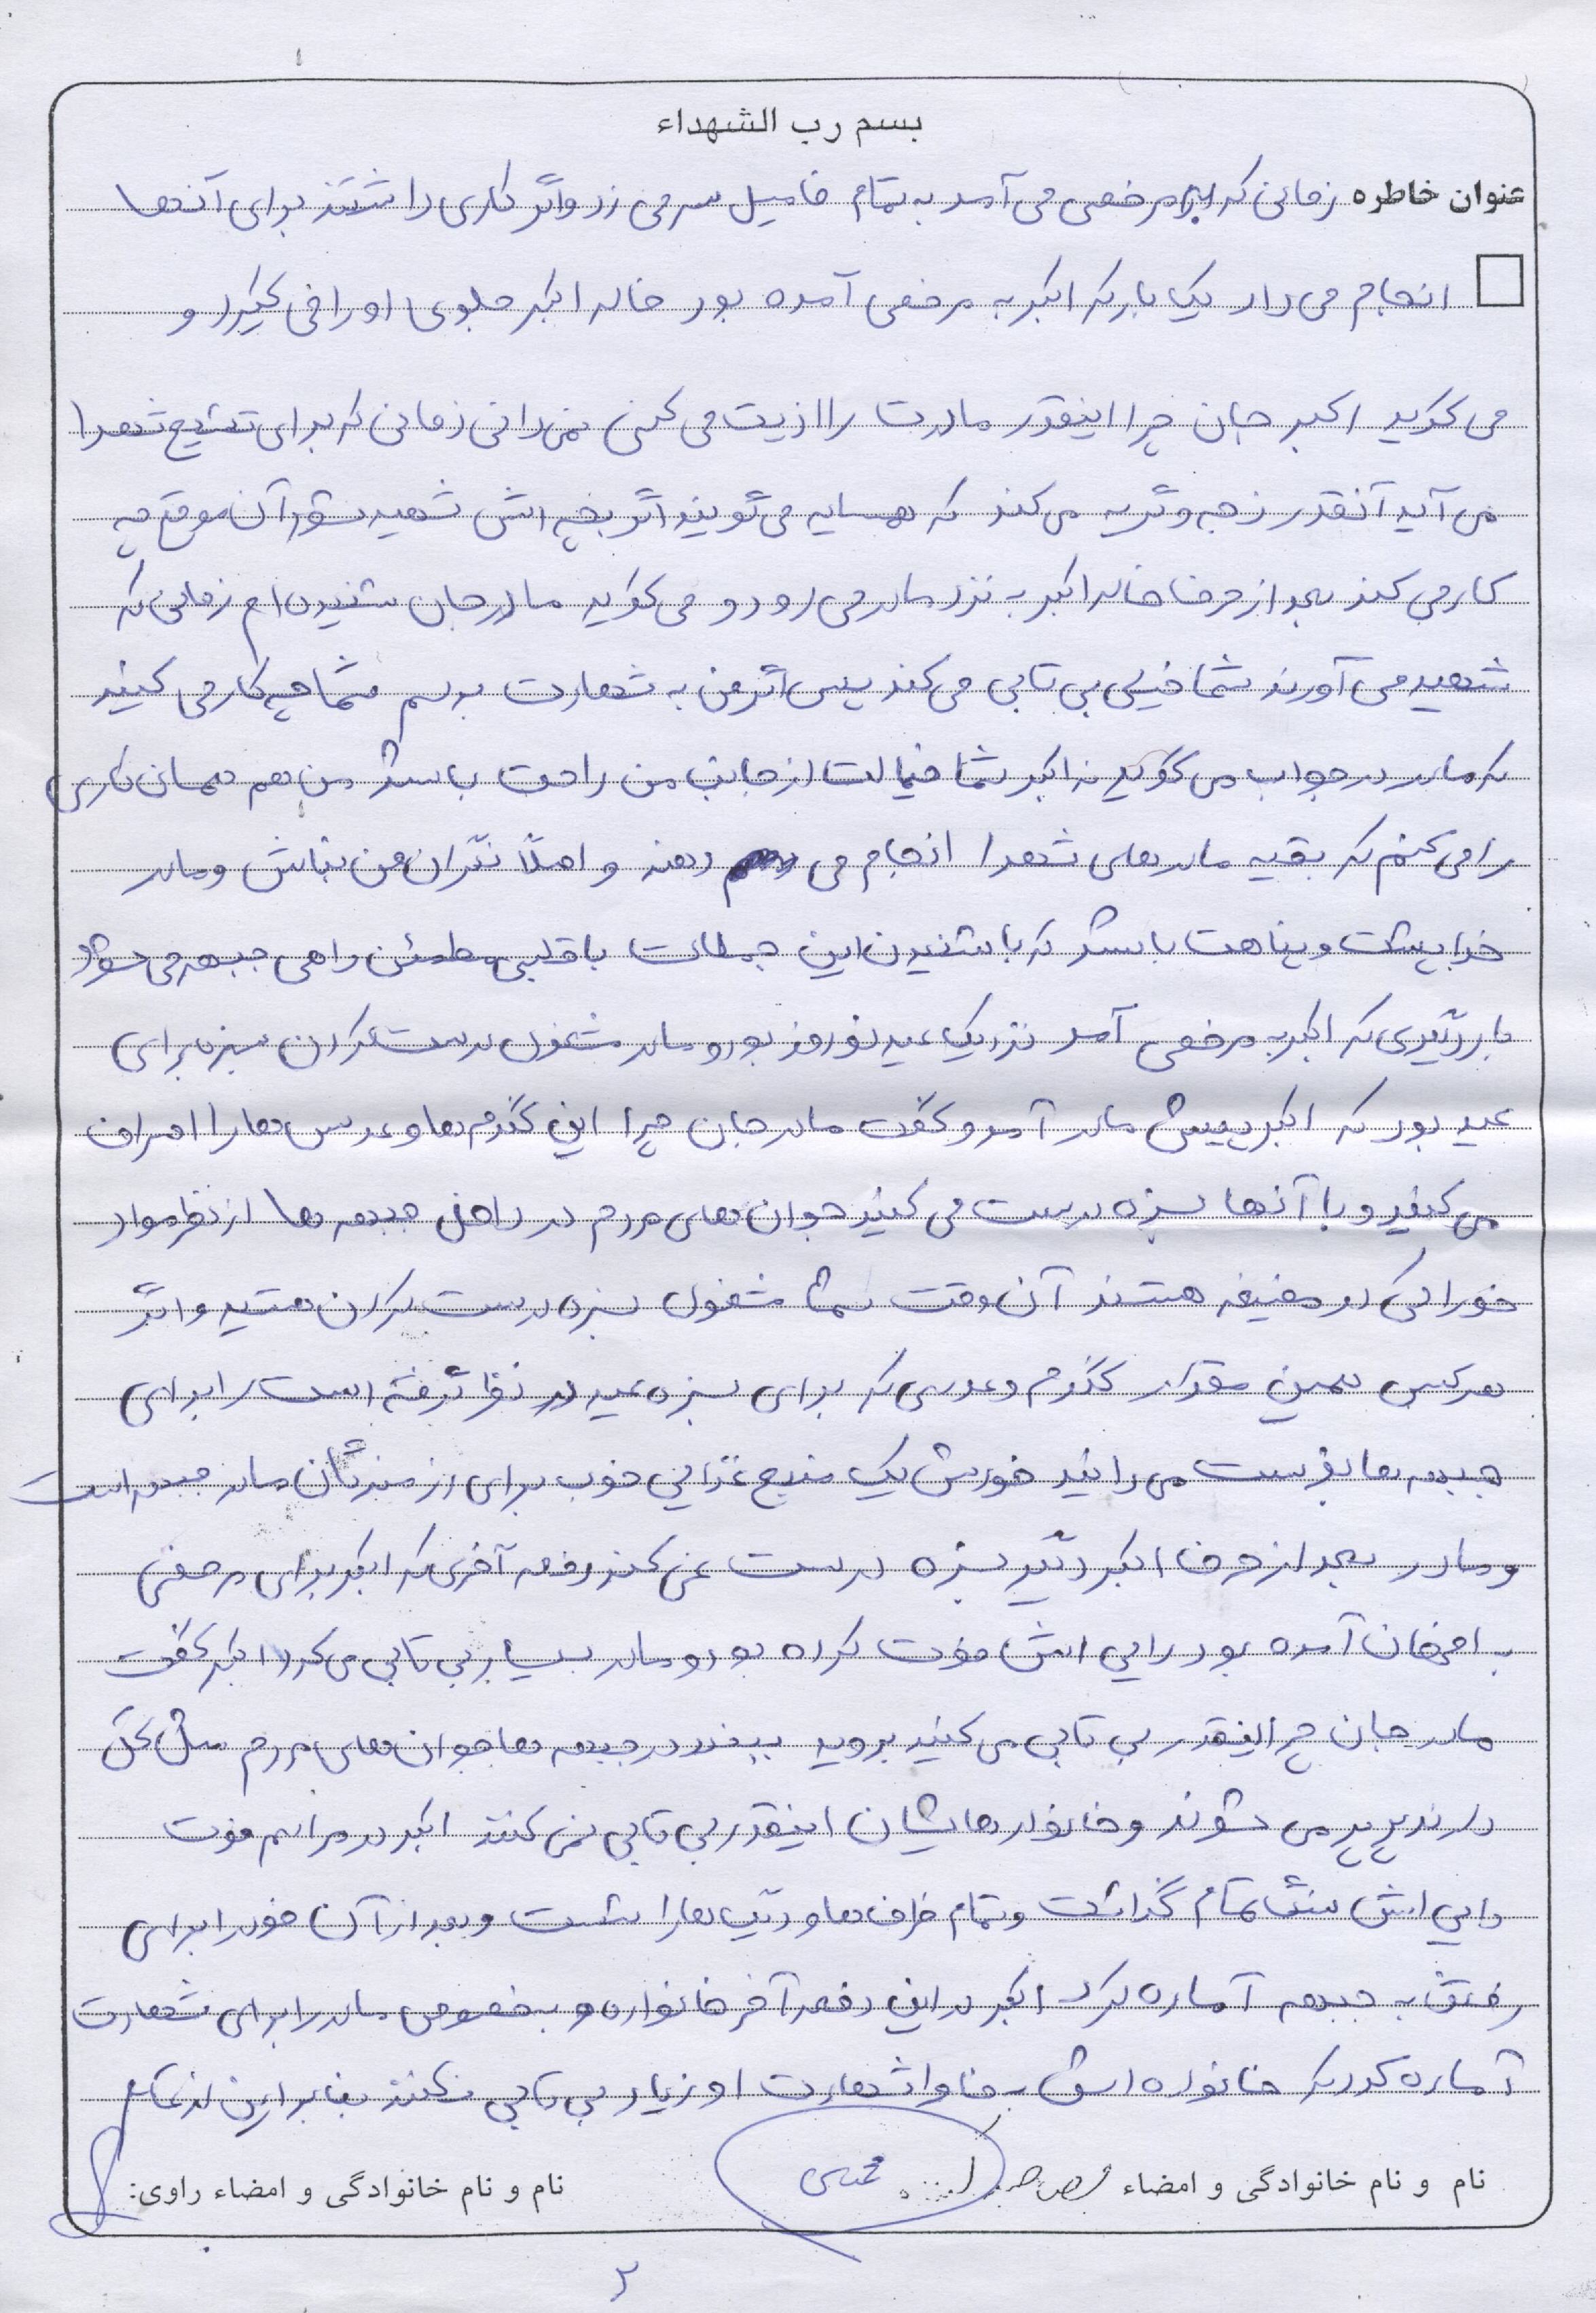 بسم رب الشهداء
عنوان خاطره زمانی که به مرخصی می آمد به تمام فامیل سر می زد و اگر کاری داشتند برای آنها
انجام می داد یک بار که اکبر به مرخصی آمده بود خاله اکبر جلوی او را می گیرد و
می گوید اکبر جان چرا اینقدر مادرت را اذیت می کنی نمی دانی زمانی که برای تشیع شهدا
می آید آنقدر زجه و گریه می کند که همسایه می گویند اگر بچه اش شهید شود آن موقع چه
کار می کند بعد از حرفا خاله اکبر به نزد مادر می رود و می گوید مادر جان شنیده ام زمانی که
شهید می آورند شما خیلی بی تابی می کند پس اگر من به شهادت برسم شما چه کار می کنید
که مادر در جواب می گوید نه اکبر شما خیالت از جانب من راحت باشد من هم همان کاری
را می کنم که بقیه مادرهای شهدا انجام می دهند و اصلاً نگران من نباش و مادر
خدا پشت و پناهت باشد که با شنیدن این جملات با قلبی مطمئن راهی جبهه می شود
بار دیگری که اکبر به مرخصی آمد نزدیک عید نوروز بود و مادر مشغول درست کردن سبزه برای
عید بود که اکبر پیش مادر آمد و گفت مادر جان چرا این گندم ها و عدس ها را اسراف
می کنید و با آنها سبزه درست می کنید جوان های مردم در داخل جبهه ها از نظر مواد
خوراکی در مضیقه هستند آن وقت شما مشغول سبزه درست کردن هستید و اگر
هر کس همین مقدار گندم و عدسی که برای سبزه عید در نظر گرفته است را برای
جبهه ها بفرست می دانید خودش یک منبع غذایی خوب برای رزمندگان ما در جبهه است
و مادر بعد از حرفا اکبر دیگر سبزه درست نمی کند دفعه آخری که اکبر برای مرخصی
به اصفهان آمده بود دایی اش فوت کرده بود و مادر بسیار بی تابی می کرد اکبر گفت
مادر جان چرا اینقدر بی تابی می کنید بروید ببیند در جبهه ها جوان های مردم مثل گل
دارند پرپر می شوند و خانواد هایشان اینقدر بی تابی نمی کنند اکبر در مراسم فوت
دایی اش سنگ تمام گذاشت و تمام ظرف ها و دیگ ها را شست و بعد از آن خود را برای
رفتن به جبهه آماده کرد اکبر در این دفعه آخر خانواده و بخصوص مادر را برای شهادت
آماده کرد که خانواده اش به خاطر شهادت او زیاد بی تابی نکنند بنابراین از تمام
نام و نام خانوادگی و امضاء
نام و نام خانوادگی و امضاء راوی:
۲